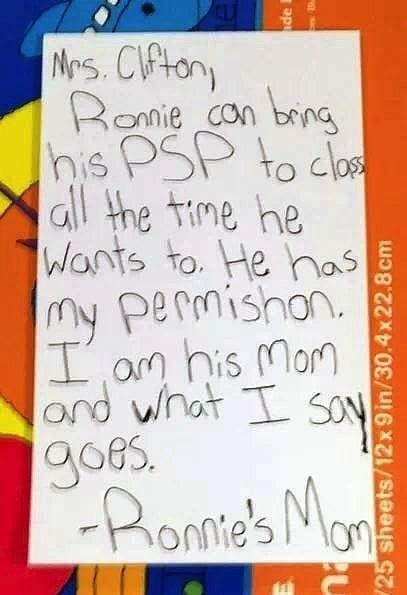 Mrs. Clifton,
Ronnie can bring
his PSP to class
all the time he
wants to. He has
my permishon.
I am his Mom
and what I say
goes.
-Ronnie's Mom
25 sheets/12x9in/30.4x22.8cm